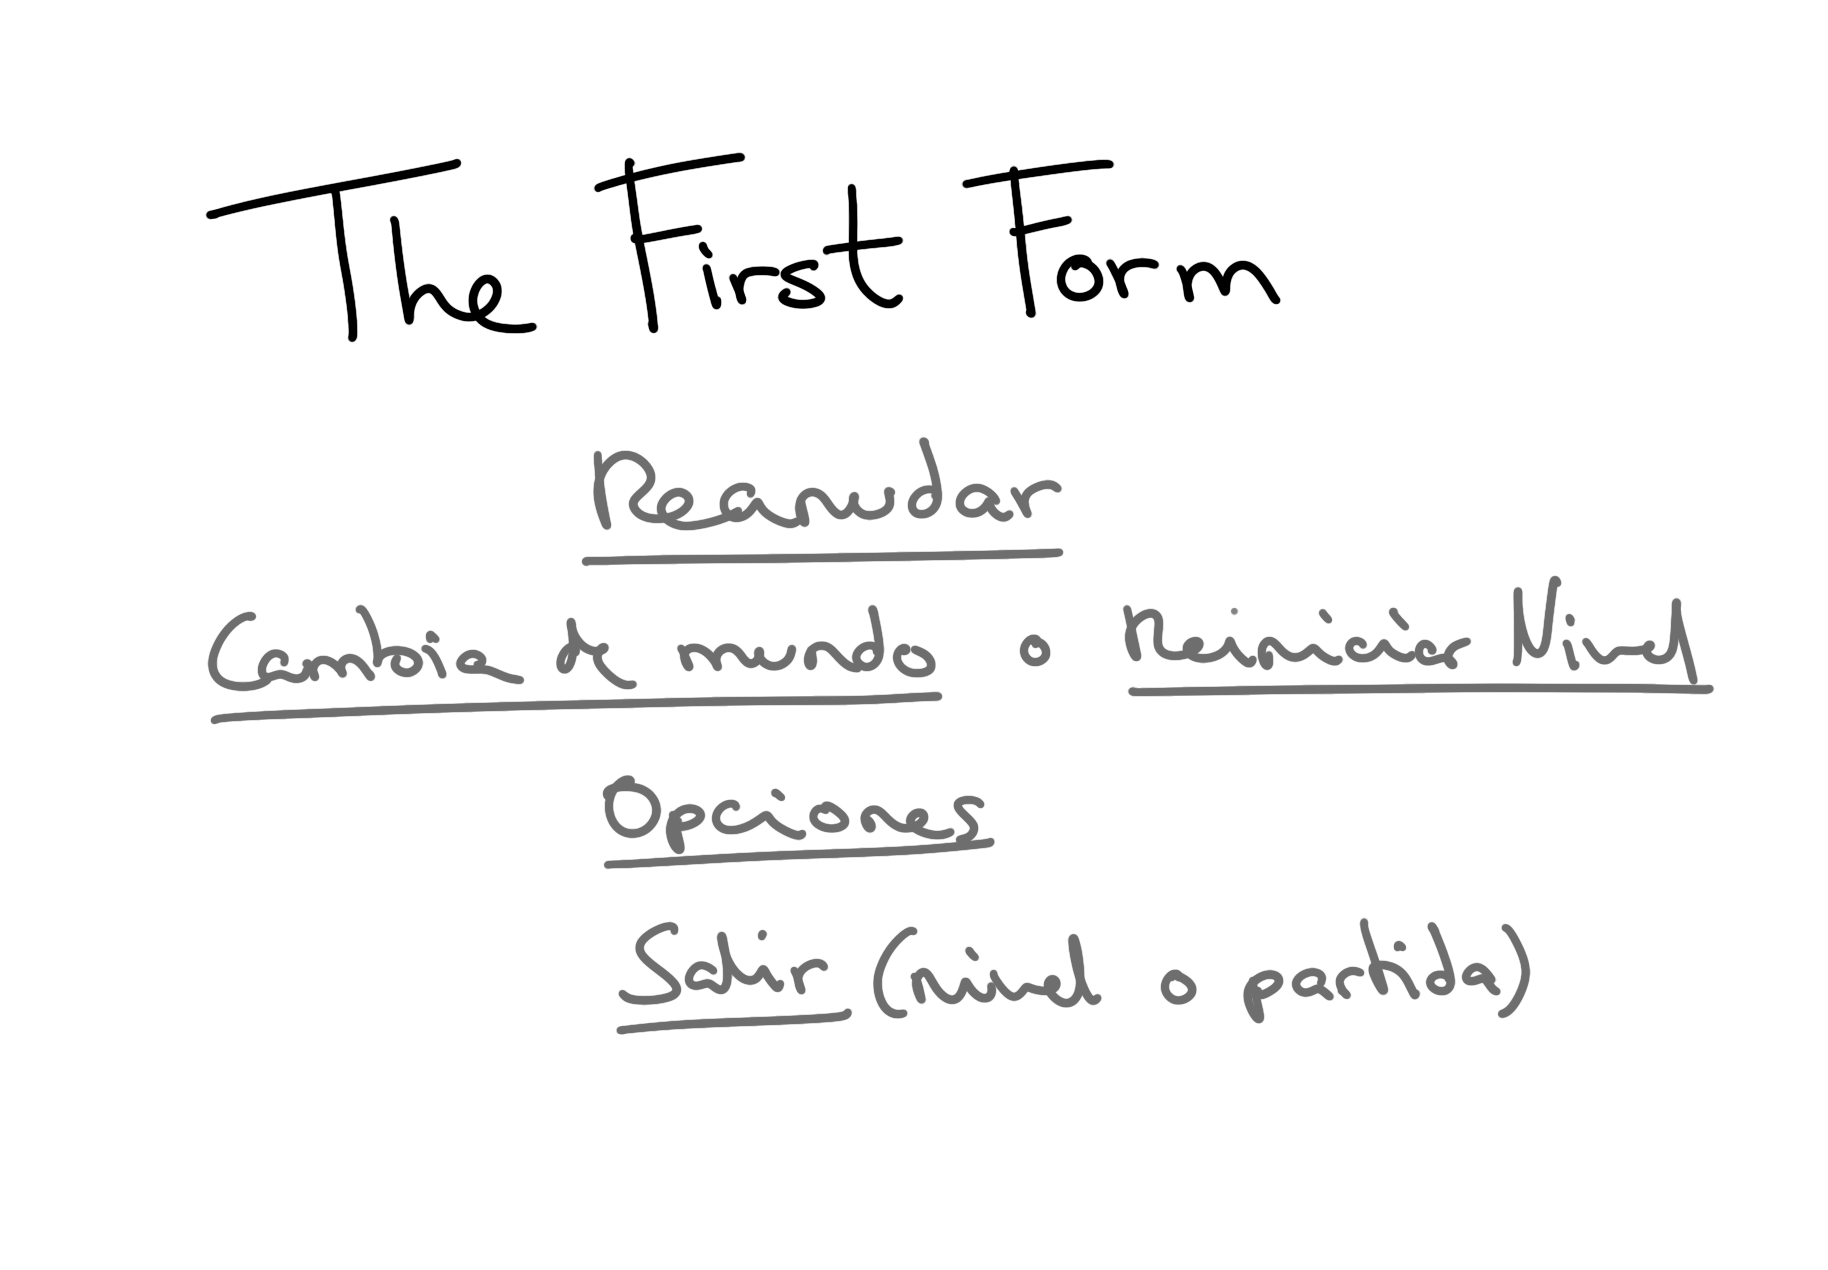 The First Form
Reanudar
Cambia de mundo o Reiniciar Nivel
Opciones
Salir (nivel o partida)